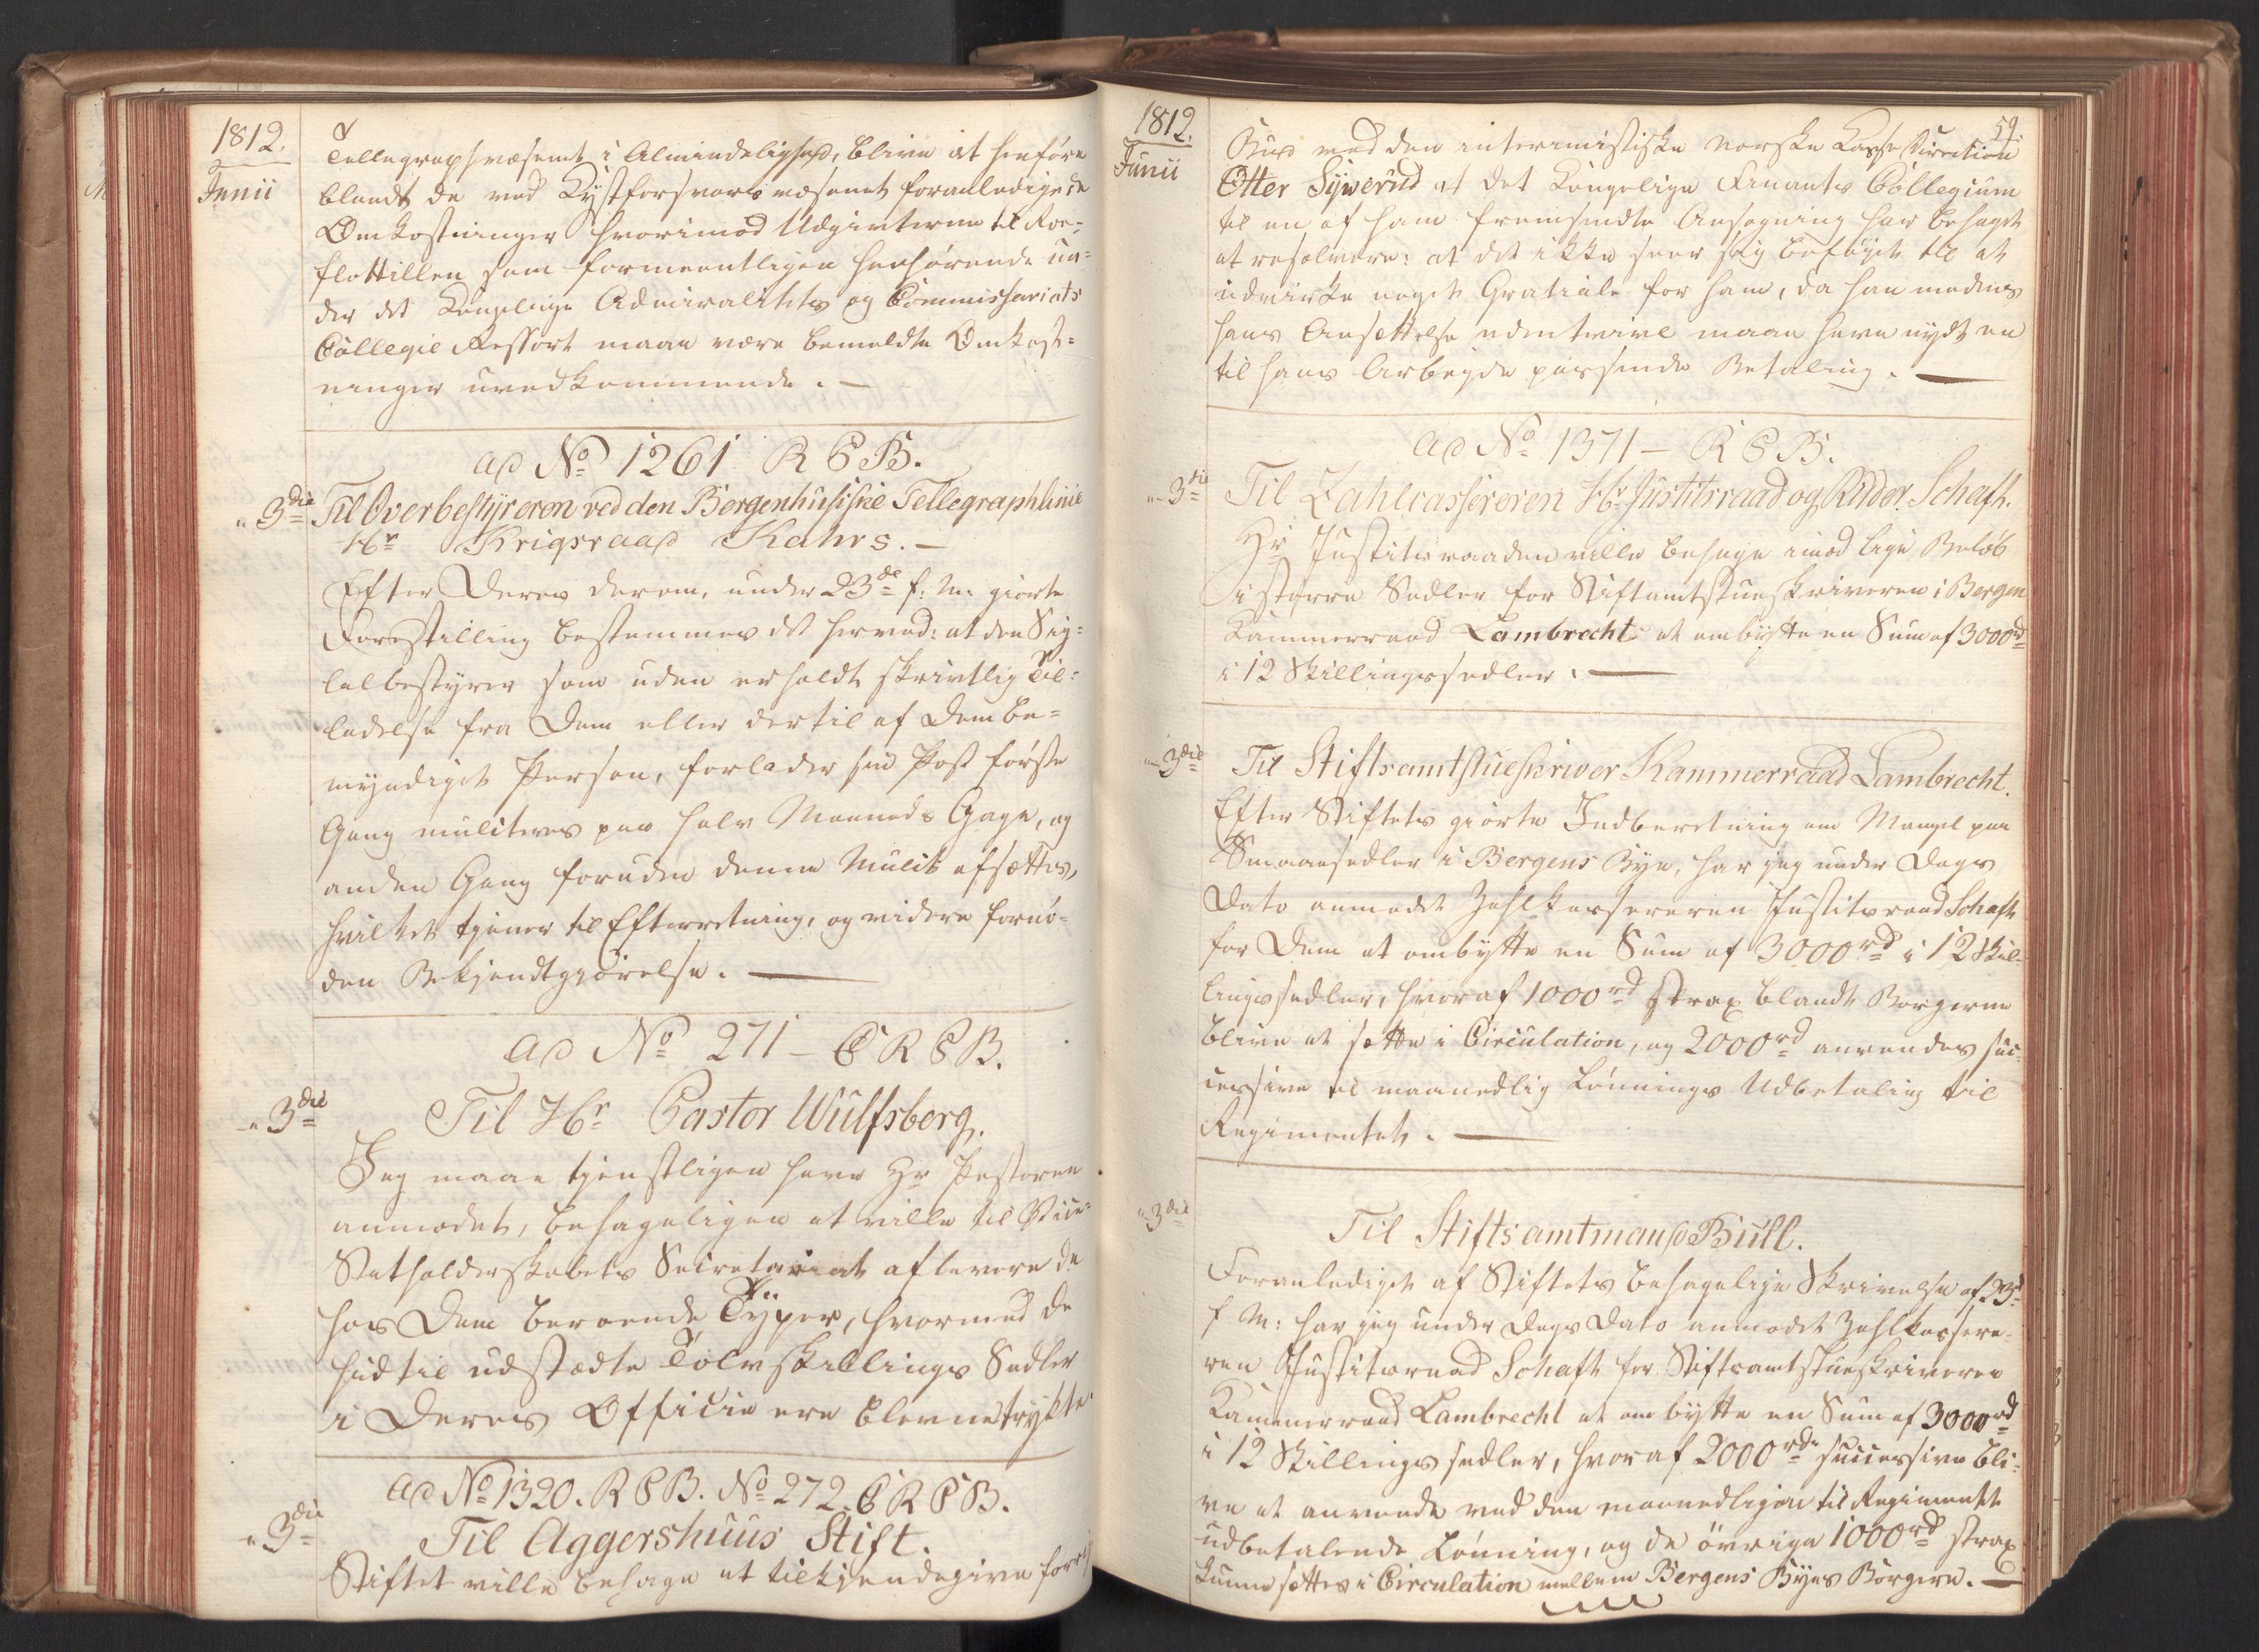 1812.
Junii
Tellegraphvæsenet i Almindelighed, blive at henføre
blandt de ved Kystforsvarsvæsenet foranledigede
Omkostninger hvorimod Udgivterne til Roe-
flottillen som formeentligen henhørende un-
der det Kongelige Admiralitets og Commissariats
Collegie Ressort maae være bemeldte Omkost-
ninger uvedkommende. —
ad No 1261 R C B.
" 3die Til Overbestyreren ved den Bergenhusiske Tellegraphlinie
Hr Krigsraad Kahrs. —
Efter Deres derom, under 23de f. M. giorte
Forestilling bestemmes det herved: at den Sig-
lalbestyrer som uden erholdt skrivtlig Til-
ladelse fra Dem eller dertil af Dem be-
myndiget Person, forlader sin Post første
Gang mulcteres paa halv Maaneds Gage, og
anden Gang foruden denne Mulct afsættes,
hvilket tjener til Efterretning, og videre fornø-
den Bekjendtgjørelse. —
ad No 271 — C R C B.
" 3die
Til Hr Pastor Wulfsberg.
Jeg maae tjenstligen have Hr Pastoren
anmodet, behageligen at ville til Vice-
Statholderskabets Secretariat aflevere de
hos Dem beroende Typer, hvormed de
hidtil udstædte Tolvskillings Sedler
i Deres Officin ere blevne trykte.
ad No 1320. R C B. No 272. C R C B.
" 3die
Til Aggershuus Stift.
Stiftet ville behage at tilkjendegive
1812.
Junii
59.
Bud ved den interimistiske norske Casse Direction
Otter Sywerud at det Kongelige Finants Collegium
til en af ham fremsendte Ansøgning har behaget
at resolvere: at det ikke seer sig beføyet til at
udvirke noget Gratiale for ham, da han medens
hans Ansættelse udentvivl maae have nydt en
til hans Arbeyde passende Betaling. —
ad No 1371 — R C B.
" 3die Til Zahlcassereren Hr Justitsraad og Ridder Schaft.
Hr Justitsraaden ville behage imod lige Beløb
i større Sedler for Stiftamtstueskriveren i Bergen
Kammerraad Lambrecht at ombytte en Sum af 3000 rd
i 12 Skillingssedler. —
" 3die Til Stiftsamtstueskriver Kammerraad Lambrecht.
Efter Stiftets giorte Indberetning om Mangel paa
Smaaesedler i Bergens Bye, har jeg under Dags
Dato anmodet Zahlkassereren Justitsraad Schaft
for Dem at ombytte en Sum af 3000 rd i 12 Skil-
lingssedler, hvoraf 1000 rd strax blandt Borgerne
blive at sætte i Circulation, og 2000 rd anvendes suc-
cessive til maanedlig Lønnings Udbetaling til
Regimentet. —
" 3die
Til Stiftsamtmand Bull.
Foranlediget af Stiftets behagelige Skrivelse af 23de
f M: har jeg under Dags Dato anmodet Zahlkassere-
ren Justitsraad Schaft for Stiftsamtstueskriveren
Kammerraad Lambrecht at ombytte en Sum af 3000 rd
i 12 Skillings sedler, hvoraf 2000 rd successive bli-
ve at anvende ved den maanedligen til Regimentet
udbetalende Lønning, og de øvrige 1000 rd strax
kunne sættes i Circulation mellem Bergens Byes Borgere. —